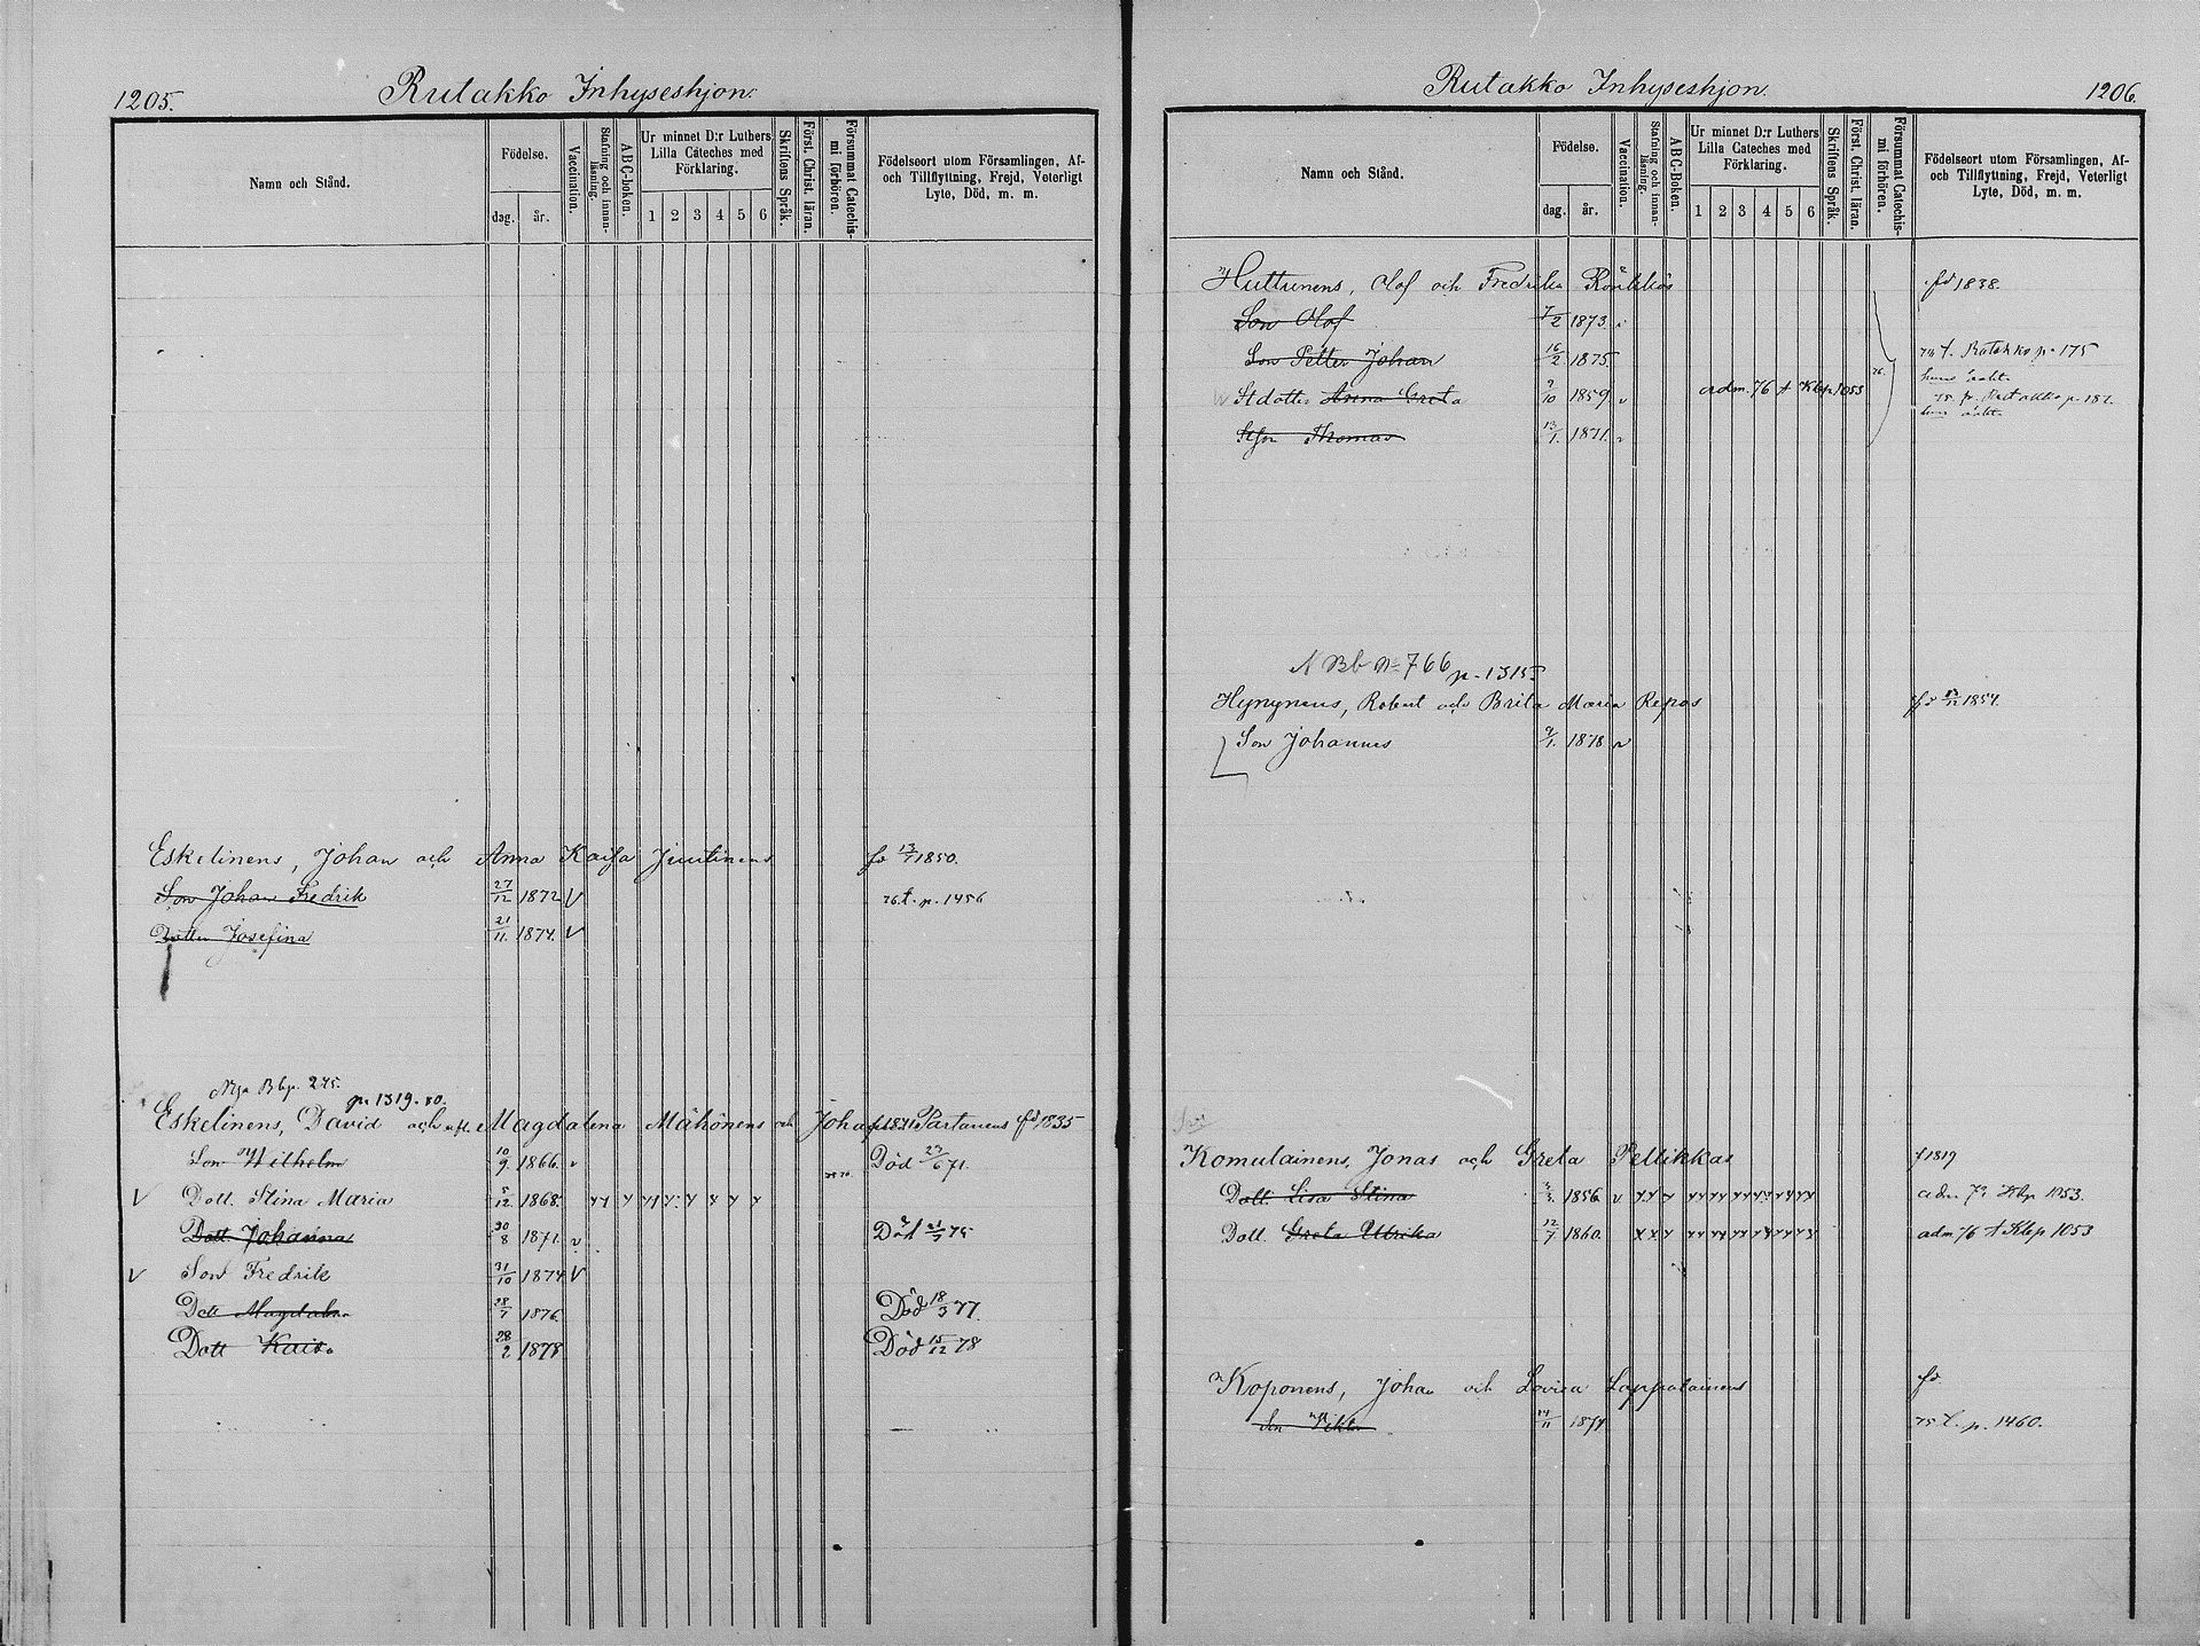 1205.
Rutakko Inhyseshjon.
Namn och Stånd.
Födelse.
dag.
år.
Vaccination.
Stafning och innan-läsning.
ABC-boken.
Ur minnet D:r Luthers Lilla Cateches med Förklaring.
1 2 3 4 5 6
Skriftens Språk.
Först. Christ. läran.
Försummat Catechis-mi förhören.
Födelseort utom Församlingen, Af- och Tillflyttning, Frejd, Veterligt Lyte, Död, m. m.
Eskelinens, Johan och Anna Kaisa Juutinens fd 13/1 1850.
Son Johan Fredrik 27/12 1872 V 76 t. p. 1456
Dotter Josefina 21/11. 1874. V
Nya Bbp. 275.
p. 1319. 80.
Eskelinens, David och Magdalena Mähönens och Johanna Partanens fd 1835
Son Wilhelm 10/9. 1866. v Död 71.
V Dott. Stina Maria 5/12. 1868.
Dott. Johanna 30/8 1871. v Död 75
V Son Fredrik 31/10 1874 V
Dott Magdalena 28/7 1876. Död 18/3 77.
Dott Kaisa 28/2 1878 Död 15/12 78
Rutakko Inhyseshjon.
1206.
Namn och Stånd.
Födelse.
dag.
år.
Vaccination.
Stafning och innan-läsning.
ABC-Boken.
Ur minnet D:r Luthers Lilla Cateches med Förklaring.
1 2 3 4 5 6
Skriftens Språk.
Först. Christ. läran.
Försummat Catechis-mi förhören.
Födelseort utom Församlingen, Af- och Tillflyttning, Frejd, Veterligt Lyte, Död, m. m.
Huttunens, Olof och Fredrika Rönkkös fd 1838.
Son Olof 7/2 1873.
Son Petter Johan 16/2 1875. t. Rutakko p. 175
Stdotter Anna Greta 9/10 1859 v adm. 76 t Kbp 1053 76.
75. fr. Rutakko p. 182.
Stson Thomas 13/1. 1871. v
N Bb No 766 p. 1315
Hynynens, Robert och Brita Maria Repos fd 1854.
Son Johannes 9/1. 1878 v
Komulainens, Jonas och Greta Pellikkas f 1819
Dott. Lisa Stina 1856 v adm 73 Kbp 1053.
Dott. Greta Ulrika 12/7 1860. adm 76 t Kbp 1053
Koponens, Johan och Lovisa Lappalainens fd
Son Viktor 14/11 1874 75 t. p. 1460.